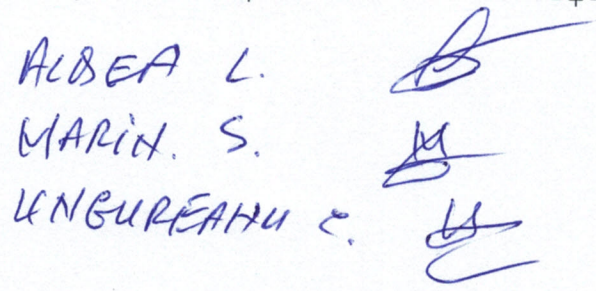 ALBEA L.
MARIN. S.
UNGUREANU C.